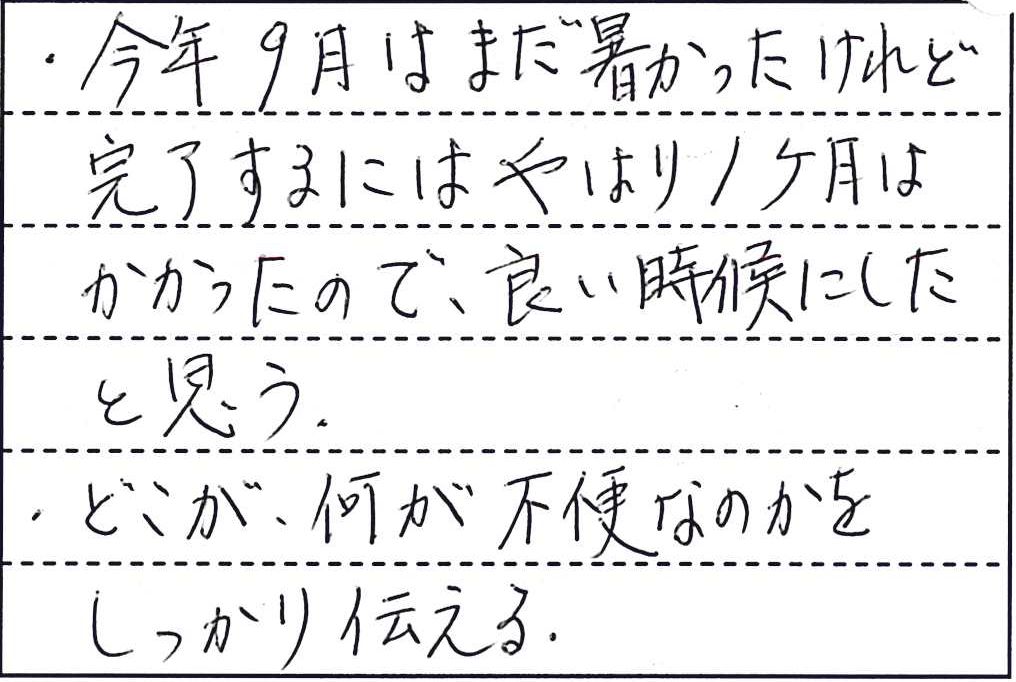 ・今年9月はまだ暑かったけれど
完了するにはやはり1ケ月は
かかったので、良い時候にした
と思う.
・どこが、何が不便なのかを
しっかり伝える.